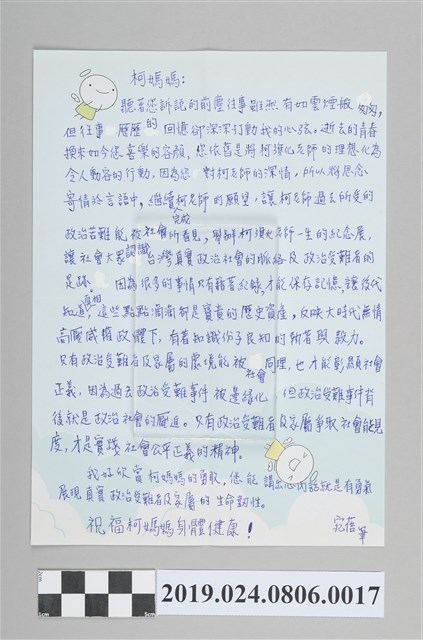 柯媽媽：
聽著您訴說的前塵往事雖然有如雲煙般匆匆，
但往事歷歷的回憶卻深深打動我的心弦。逝去的青春
換來如今您喜樂的容顏，您依舊是將柯旗化老師的理想化為
令人動容的行動，因為您對柯老師的深情，所以將思念
寄情於言語中，繼續完成柯老師的願望，讓柯老師過去所受的
政治苦難能被社會所看見，舉辦柯旗化老師一生的紀念展，
讓社會大眾認識台灣真實政治社會的脈絡及政治受難者的
足跡。因為很多的事情只有藉著紀錄，才能保存記憶，讓後代
知道真相，這些點點滴滴都是寶貴的歷史資產，反映大時代無情
高壓威權政體下，有著知識份子良知的執著與毅力。
只有政治受難者及家屬的處境能被社會同理，也才能彰顯社會
正義，因為過去政治受難事件被邊緣化，但政治受難事件背
後就是政治社會的壓迫。只有政治受難者及家屬爭取社會能見
度，才是實踐社會公平正義的精神。
我好欣賞柯媽媽的勇敢，您能講出心內話就是有勇氣
展現真實政治受難者及家屬的生命韌性。
祝福柯媽媽身體健康！
宛蓓筆
1cm 5cm
2019.024.0806.0017